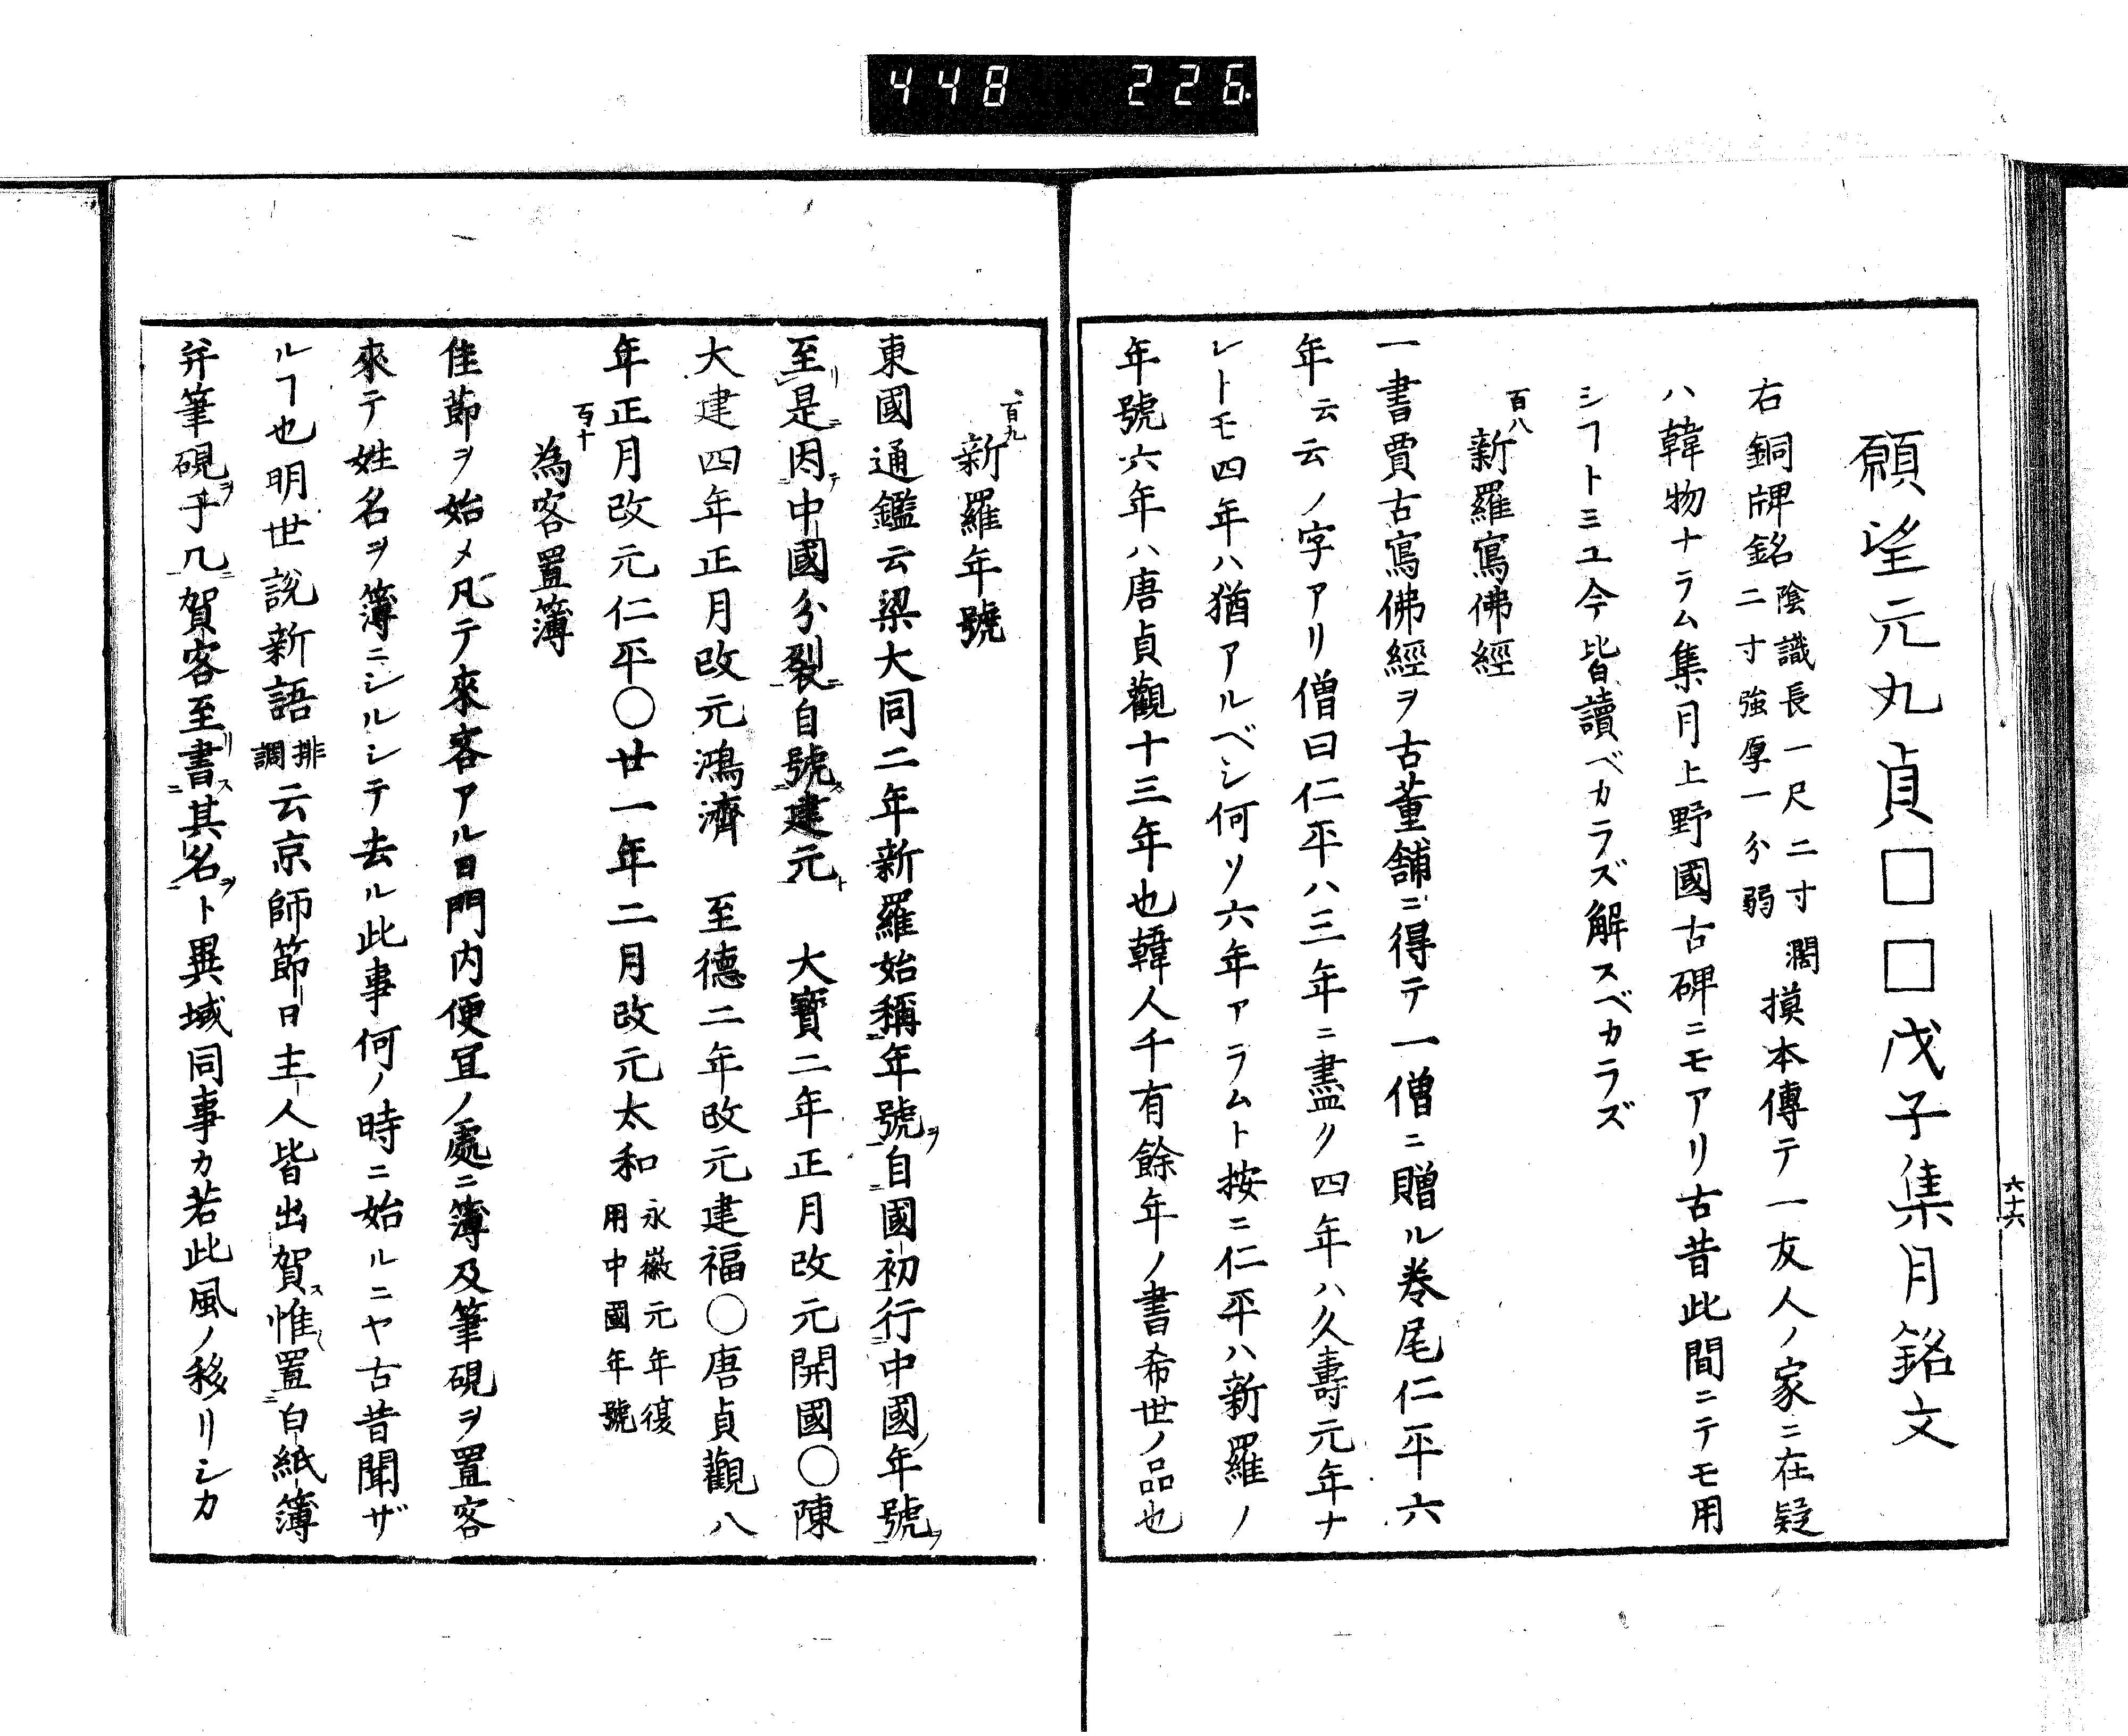 448 226
六十六
願望元丸貞□□戊子集月銘文
右銅牌銘陰識長一尺二寸濶二寸強厚一分弱摸本傳テ一友人ノ家ニ在疑
ハ韓物ナラム集月上野國古碑ニモアリ古昔此間ニテモ用
シヿトミユ今皆讀ベカラズ解スベカラズ
百八
新羅寫佛經
一書賈古寫佛經ヲ古董舖ニ得テ一僧ニ贈ル巻尾仁平六
年云云ノ字アリ僧曰仁平ハ三年ニ盡ク四年ハ久壽元年ナ
レトモ四年ハ猶アルベシ何ソ六年アラムト按ニ仁平ハ新羅ノ
年號六年ハ唐貞觀十三年也韓人千有餘年ノ書希世ノ品也
百九
新羅年號
東國通鑑云梁大同二年新羅始稱年號ヲ自國初行中國年號ヲ
至リ是ニ因テ中國分裂ニ自號ス建元ト 大寶二年正月改元開國〇陳
大建四年正月改元鴻濟 至德二年改元建福〇唐貞觀八
年正月改元仁平〇廿一年二月改元太和永徽元年復用中國年號
百十
為客置簿
佳節ヲ始メ凡テ來客アル日門内便宜ノ處ニ簿及筆硯ヲ置客
來テ姓名ヲ簿ニシルシテ去ル此事何ノ時ニ始ルニヤ古昔聞ザ
ルヿ也明世説新語排調云京師節日主人皆出賀ス惟置白紙簿
并筆硯ヲ于几ニ賀客至リ書ス其名ヲト異域同事カ若此風ノ移リシカ